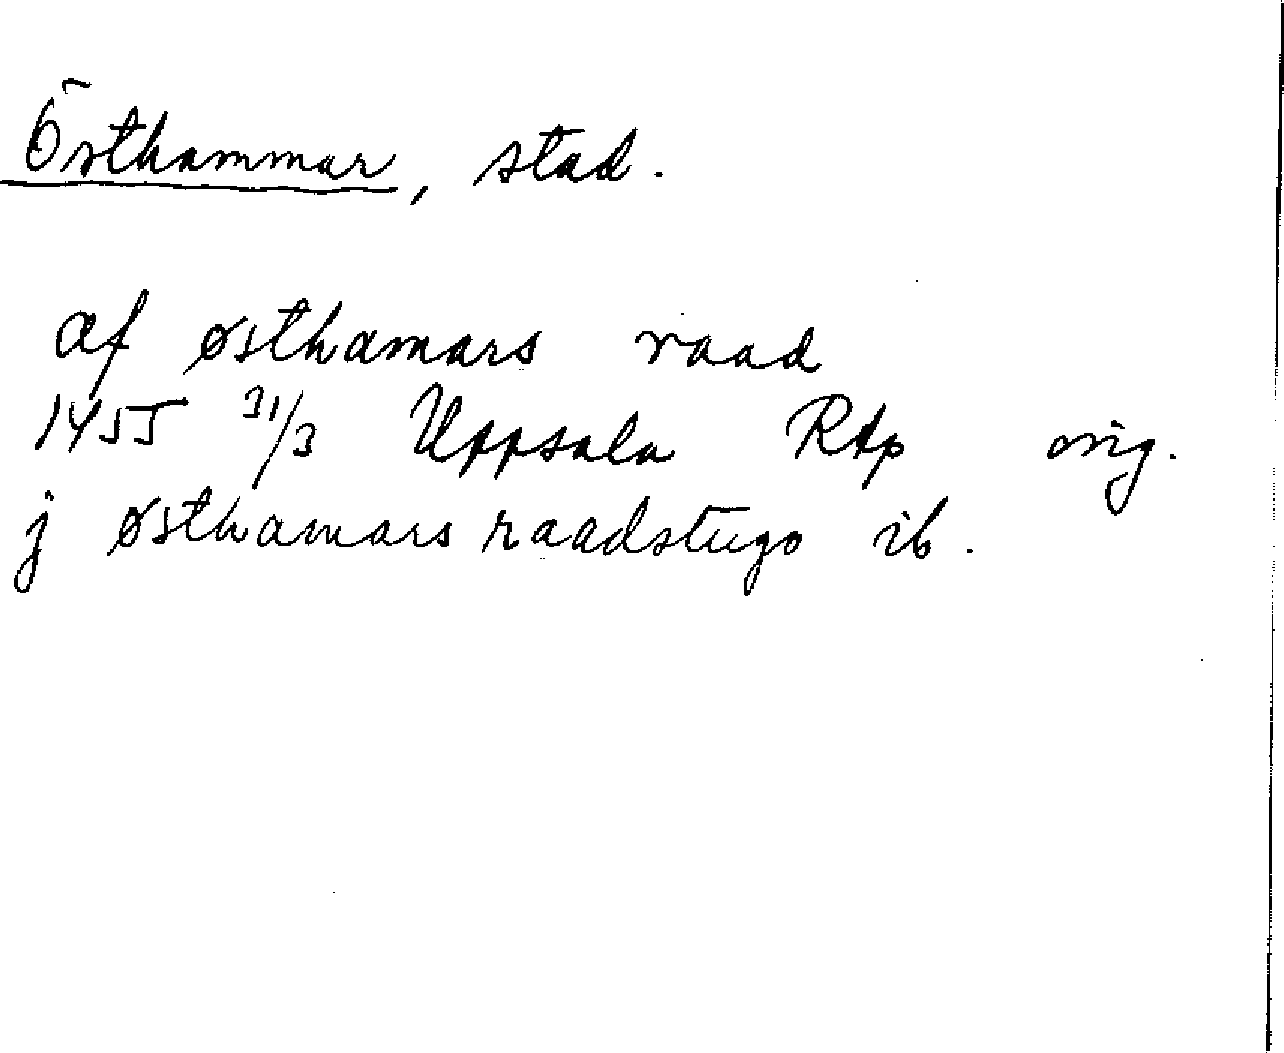 Östhammar, stad.
af østhamars raad
1455 31/3 Uppsala RAp orig.
j østhamars raadstugo ib.